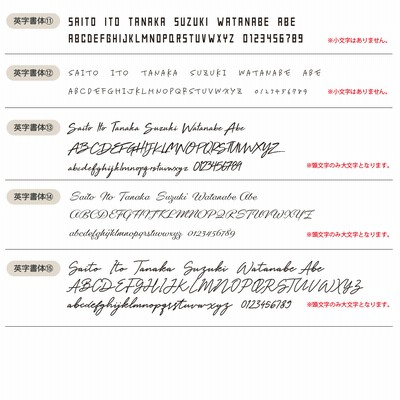 英字書体⑪ SAITO ITO TANAKA SUZUKI WATANABE ABE
ABCDEFGHIJKLMNOPQRSTUVWXYZ 0123456789 ※小文字はありません。
英字書体⑫ SAITO ITO TANAKA SUZUKI WATANABE ABE
ABCDEFGHIJKLMNOPQRSTUVWXYZ 0123456789 ※小文字はありません。
英字書体⑬ Saito Ito Tanaka Suzuki Watanabe Abe
ABCDEFGHIJKLMNOPQRSTUVWXYZ
abcdefghijklmnopqrstuvwxyz 0123456789 ※頭文字のみ大文字となります。
英字書体⑭ Saito Ito Tanaka Suzuki Watanabe Abe
ABCDEFGHIJKLMNOPQRSTUVWXYZ
abcdefghijklmnopqrstuvwxyz 0123456789 ※頭文字のみ大文字となります。
英字書体⑮ Saito Ito Tanaka Suzuki Watanabe Abe
ABCDEFGHIJKLMNOPQRSTUVWXYZ
abcdefghijklmnopqrstuvwxyz 0123456789 ※頭文字のみ大文字となります。